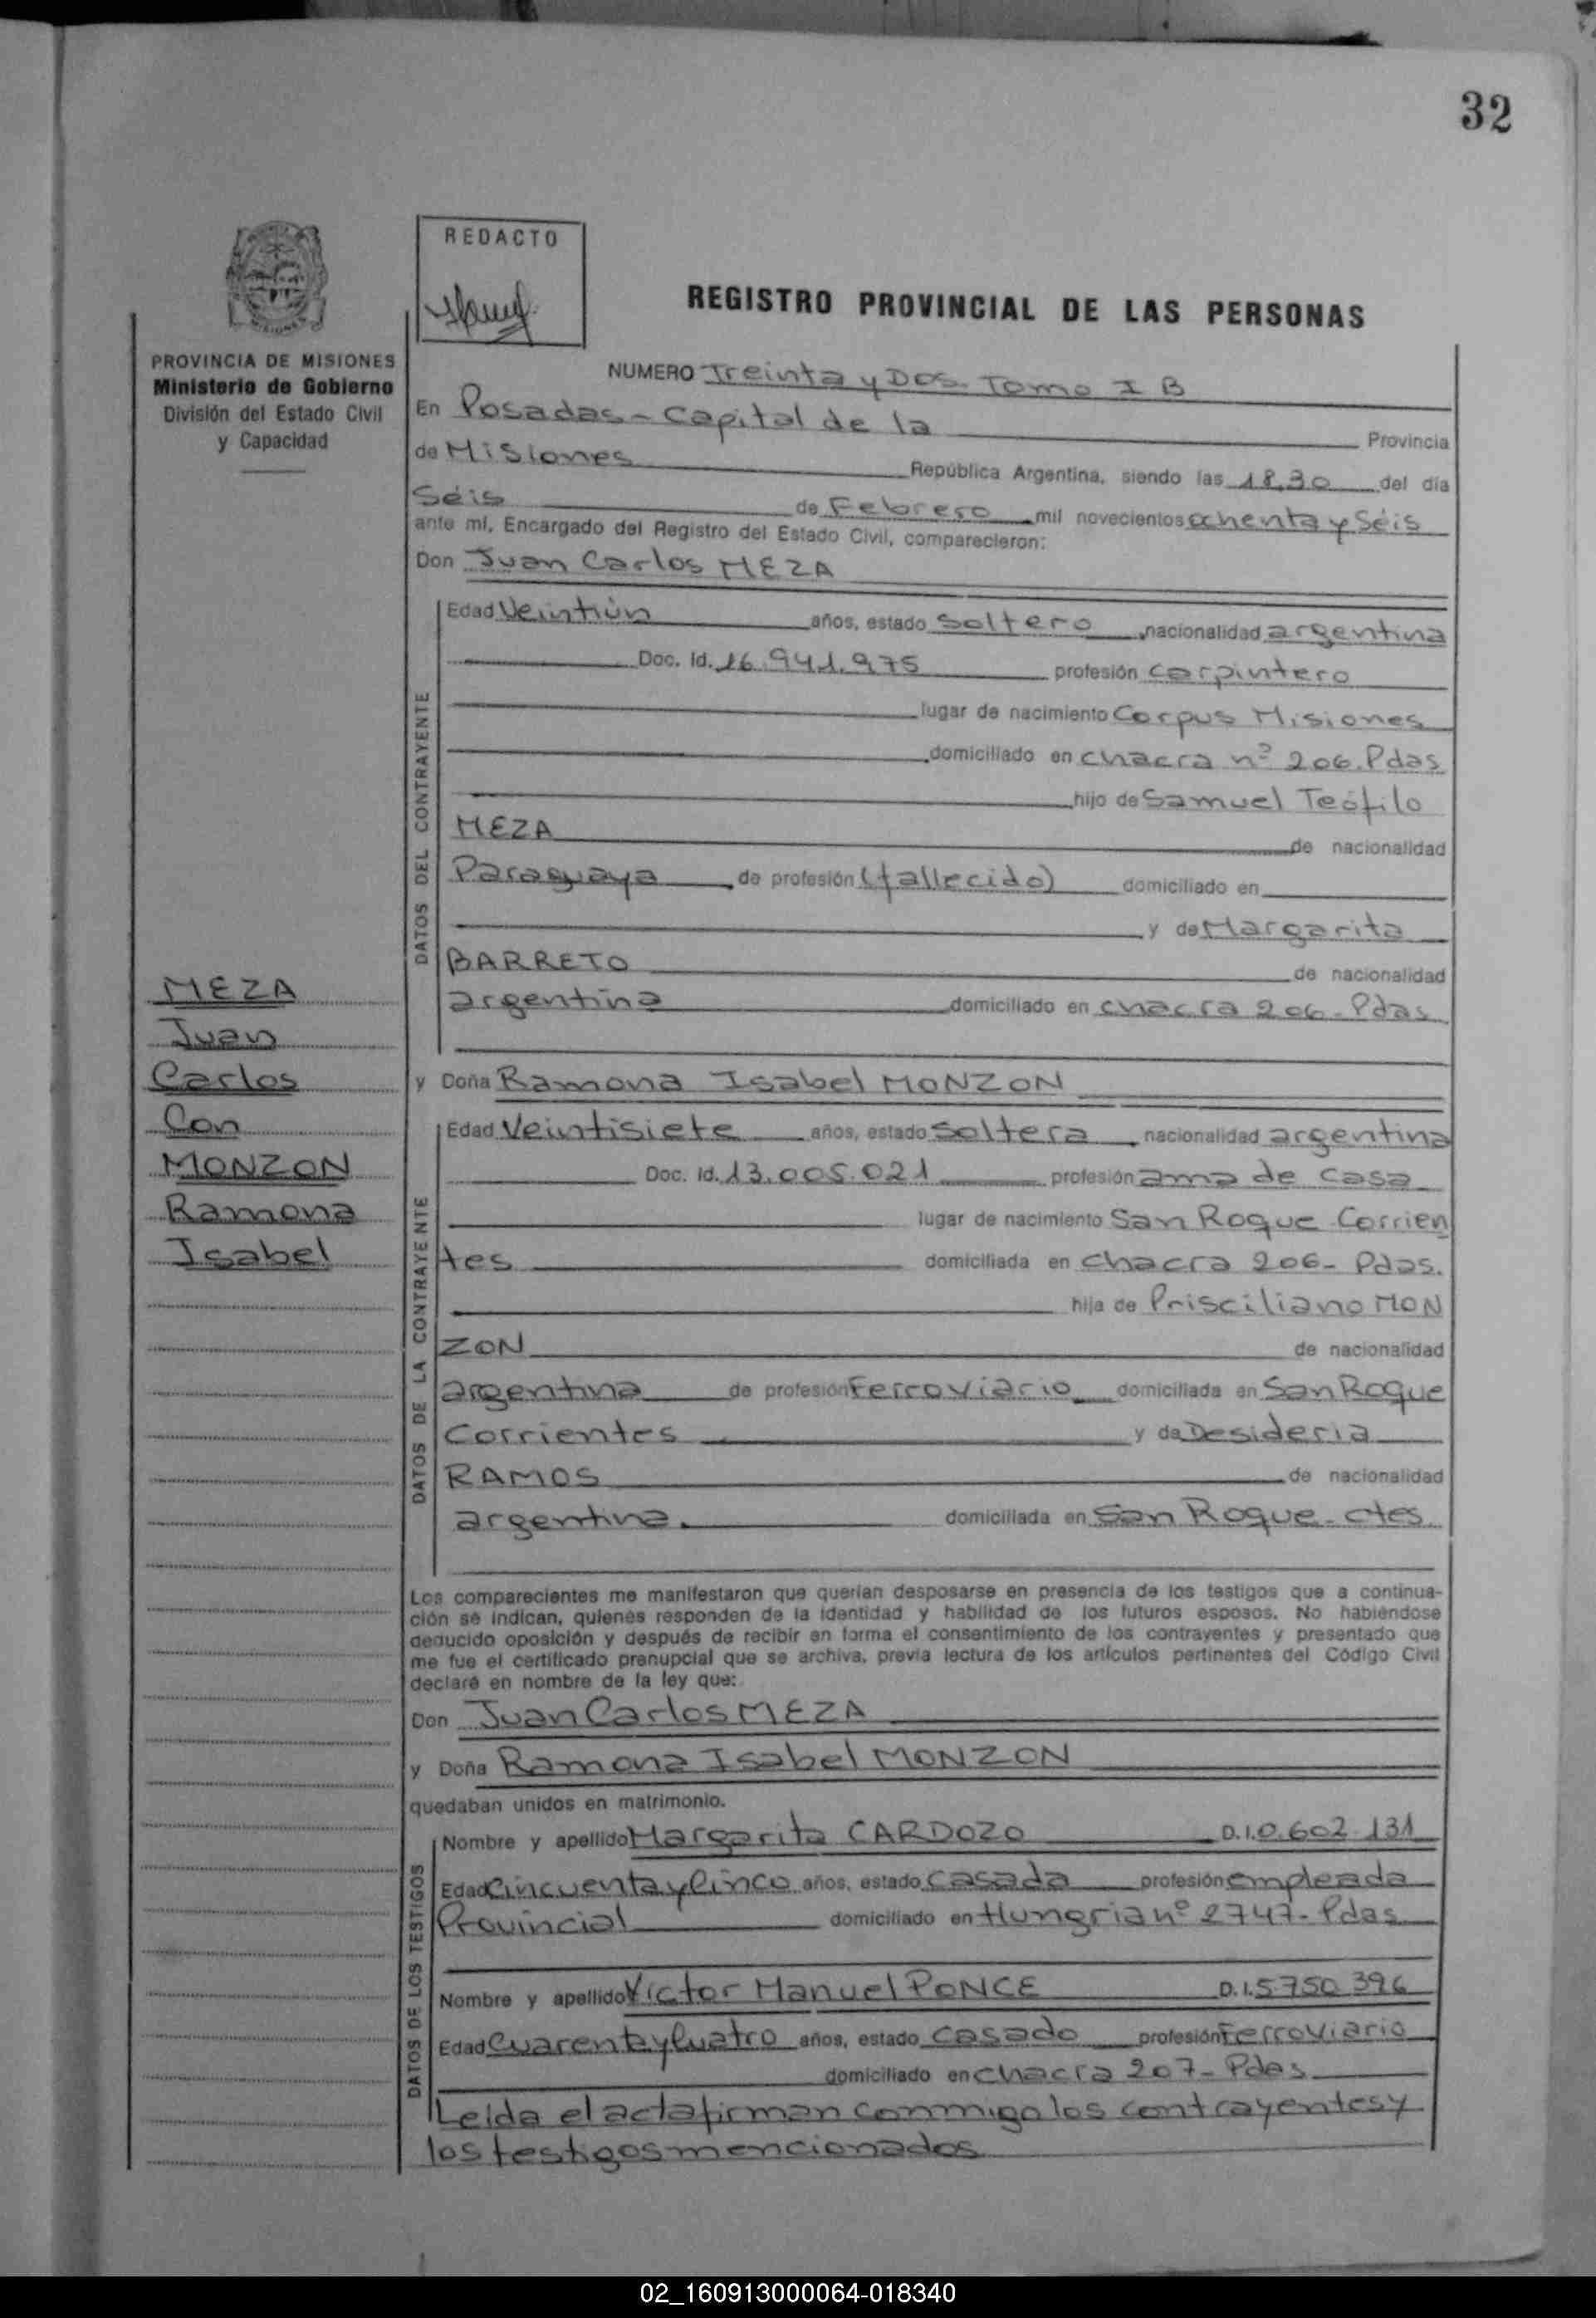 32
REDACTO
REGISTRO PROVINCIAL DE LAS PERSONAS
PROVINCIA DE MISIONES
Ministerio de Gobierno
División del Estado Civil
y Capacidad
NUMERO Treinta y Dos. Tomo I B
En Posadas - Capital de la Provincia
de Misiones República Argentina, siendo las 18,30 del día
Séis de Febrero mil novecientos ochenta y Séis
ante mí, Encargado del Registro del Estado Civil, comparecieron:
Don Juan Carlos MEZA
DATOS DEL CONTRAYENTE
Edad Veintiún años, estado Soltero nacionalidad argentina
Doc. Id. 16.941.975 profesión carpintero
lugar de nacimiento Corpus Misiones
domiciliado en chacra nº 206. Pdas
hijo de Samuel Teófilo
MEZA de nacionalidad
Paraguaya de profesión (fallecido) domiciliado en
y de Margarita
BARRETO de nacionalidad
argentina domiciliado en chacra 206 - Pdas
MEZA
Juan
Carlos
Con
MONZON
Ramona
Isabel
y Doña Ramona Isabel MONZON
DATOS DE LA CONTRAYENTE
Edad Veintisiete años, estado Soltera nacionalidad argentina
Doc. Id. 13.005.021 profesión ama de casa
lugar de nacimiento San Roque Corrien
tes domiciliada en chacra 206- Pdas.
hija de Prisciliano MON
ZON de nacionalidad
argentina de profesión Ferroviario domiciliada en San Roque
Corrientes y de Desideria
RAMOS de nacionalidad
argentina. domiciliada en San Roque - ctes
Los comparecientes me manifestaron que querían desposarse en presencia de los testigos que a continua-
ción se indican, quienes responden de la identidad y habilidad de los futuros esposos. No habiéndose
deducido oposición y después de recibir en forma el consentimiento de los contrayentes y presentado que
me fue el certificado prenupcial que se archiva, previa lectura de los artículos pertinentes del Código Civil
declaré en nombre de la ley que:
Don Juan Carlos MEZA
y Doña Ramona Isabel MONZON
quedaban unidos en matrimonio.
DATOS DE LOS TESTIGOS
Nombre y apellido Margarita CARDOZO D.I.0.602.131
Edad Cincuenta y Cinco años, estado Casada profesión empleada
Provincial domiciliado en Hungria nº 2747- Pdas
Nombre y apellido Víctor Manuel PONCE D.I.5.750.396
Edad Cuarenta y Cuatro años, estado Casado profesión Ferroviario
domiciliado en chacra 207- Pdas
Leída el acta firman conmigo los contrayentes y
los testigos mencionados
02_160913000064-018340